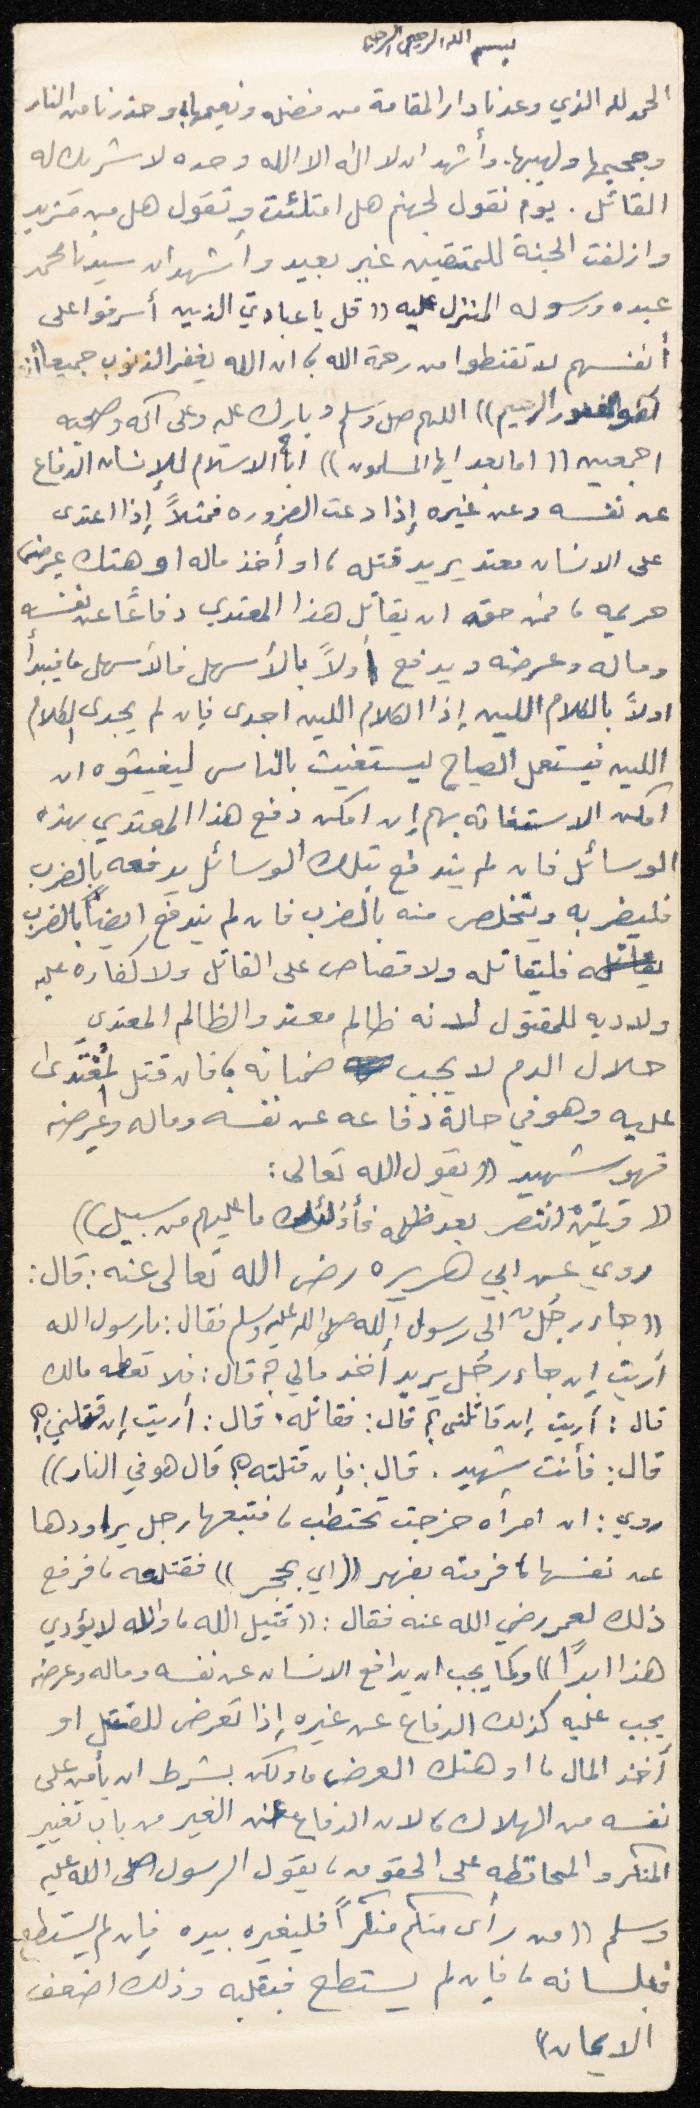 بسم الله الرحمن الرحيم
الحمد لله الذي وعدنا دار المقامة من فضله ونعيمها، وحذرنا من النار
وجحيمها ولهيبها. وأشهد ان لا اله الا الله وحده لا شريك له
القائل. يوم نقول لجهنم هل امتلئت وتقول هل من مزيد
وازلفت الجنة للمتقين غير بعيد وأشهد ان سيدنا محمد
عبده ورسوله المنزل عليه ((قل يا عبادي الذين أسرفوا على
أنفسهم لا تقنطوا من رحمة الله، ان الله يغفر الذنوب جميعاً انه
هو الغفور الرحيم)) اللهم صل وسلم وبارك عليه وعلى آله وصحبه
اجمعين ((اما بعد ايها المسلمون)) اباح الاسلام للإنسان الدفاع
عن نفسه وعن غيره إذا دعت الضروره فمثلاً إذا اعتدى
على الانسان معتد يريد قتله، او أخذ ماله او هتك عرض
حريمه، فمن حقه ان يقاتل هذا المعتدي دفاعًا عن نفسه
وماله وعرضه ويدفع أولاً بالأسهل فالأسهل، فيبدأ
اولاً بالكلام اللين إذا الكلام اللين اجدى فإن لم يجدى الكلام
اللين فيستعمل الصياح ليستغيث بالناس ليغيثوه ان
امكن الاستغاثه بهم إن امكن دفع هذا المعتدي بهذه
الوسائل فان لم يندفع بتلك الوسائل يدفعه بالضرب
فليضربه ويتخلص منه بالضرب فان لم يندفع ايضاً بالضرب
يقاتله فليقاتله ولا قصاص على القاتل ولا كفاره عليه
ولا ديه للمقتول لانه ظالم معتد والظالم المعتدي
حلال الدم لا يجب ضمانه، فان قتل المُعْتَدى
عليه وهو في حالة دفاعه عن نفسه وماله وعرضه
فهو شهيد ((يقول الله تعالى:
((ولمن انتصر بعد ظلمه فأولئك ما عليهم من سبيل))
روي عن ابي هريره رضي الله تعالى عنه: قال:
((جاء رجُل الى رسول الله صلى الله عليه وسلم فقال: يا رسول الله
أريت إن جاء رجُل يريد أخذ مالي؟ قال: فلا تعطه مالك
قال: أريت إن قاتلني؟ قال: فقاتله. قال: أريت إن قتلني؟
قال: فأنت شهيد. قال: فإن قتلته؟ قال هو في النار))
روي: ان امرأه خرجت تحتطب، فتبعها رجل يراودها
عن نفسها، فرمته بفهر ((اي بحجر)) فقتلته، فرفع
ذلك لعمر رضي الله عنه فقال: ((قتيل الله، والله لا يؤدي
هذا ابدًا)) وكما يجب ان يدافع الانسان عن نفسه وماله وعرضه
يجب عليه كذلك الدفاع عن غيره إذا تعرض للقتل او
أخذ المال، او هتك العرض، ولكن بشرط ان يأمن على
نفسه من الهلاك، لان الدفاع عن الغير من باب تغيير
المنكر والمحافظه على الحقوق، يقول الرسول صلى الله عليه
وسلم ((من رأى منكم منكراً فليغيره بيده فإن لم يستطع
فبلسانه، فإن لم يستطع فبقلبه وذلك اضعف
الايمان))